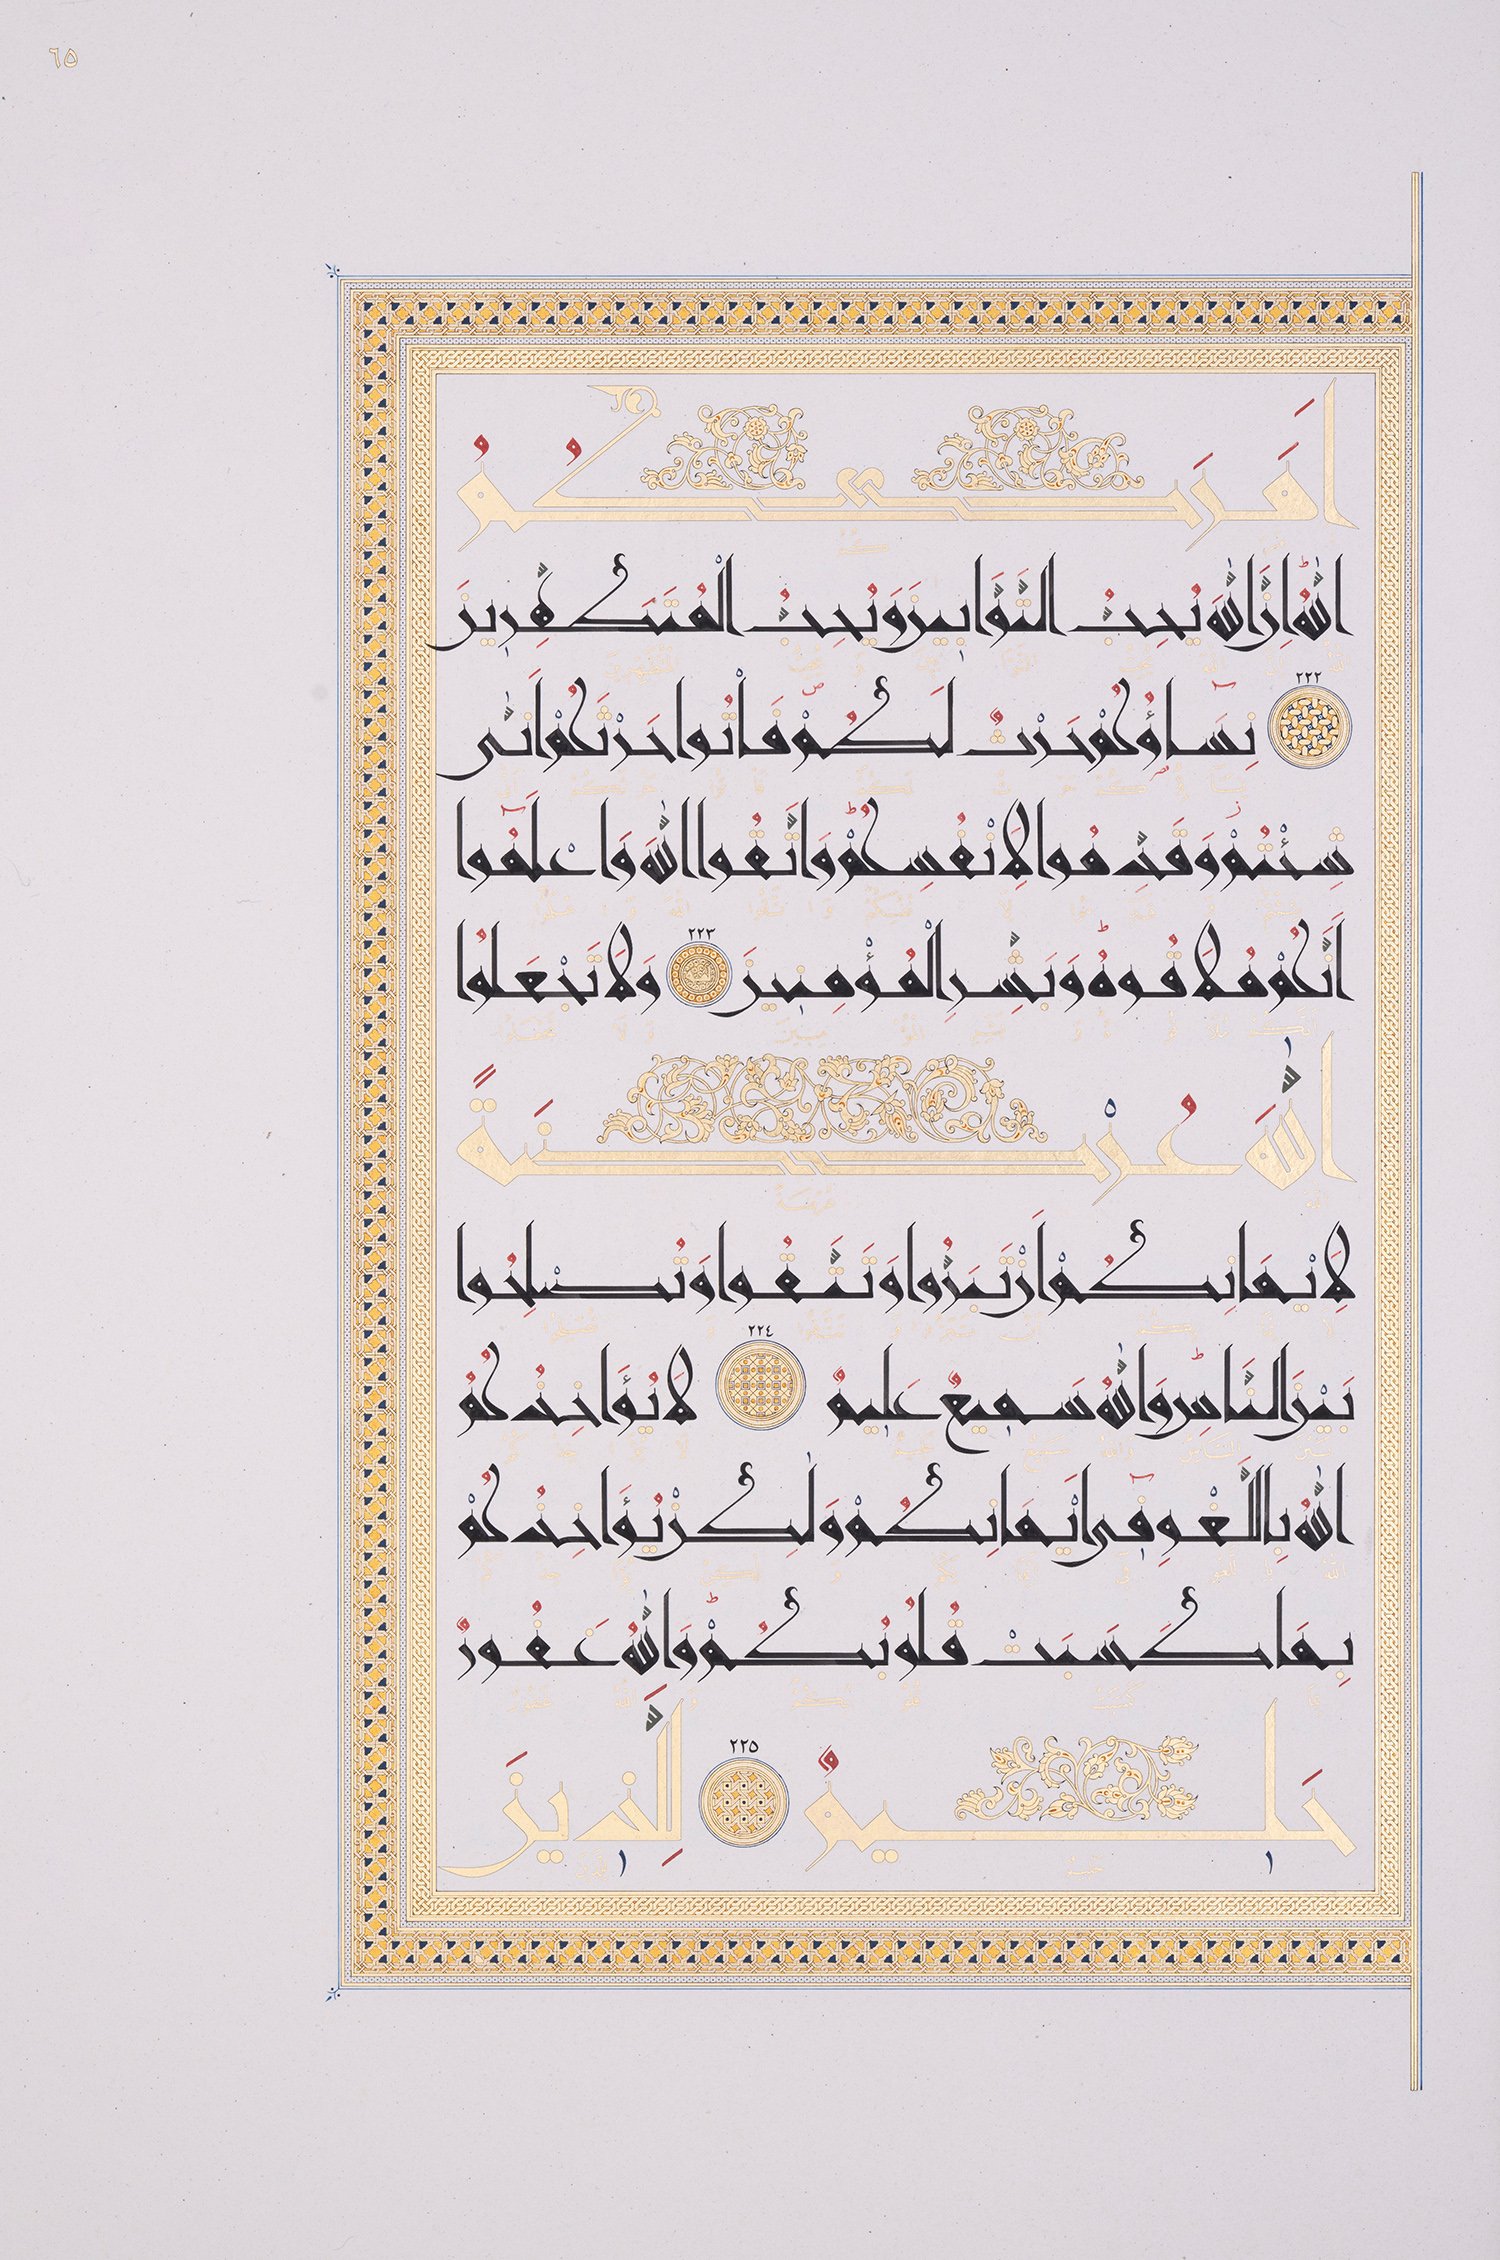 ٦٥
أَمَرَكُمُ
اللَّهُ إِنَّ اللَّهَ يُحِبُّ التَّوَّابِينَ وَيُحِبُّ الْمُتَطَهِّرِينَ
٢٢٢ نِسَاؤُكُمْ حَرْثٌ لَكُمْ فَأْتُوا حَرْثَكُمْ أَنَّىٰ
شِئْتُمْ وَقَدِّمُوا لِأَنْفُسِكُمْ وَاتَّقُوا اللَّهَ وَاعْلَمُوا
أَنَّكُمْ مُلَاقُوهُ وَبَشِّرِ الْمُؤْمِنِينَ ٢٢٣ وَلَا تَجْعَلُوا
اللَّهَ عُرْضَةً
لِأَيْمَانِكُمْ أَنْ تَبَرُّوا وَتَتَّقُوا وَتُصْلِحُوا
بَيْنَ النَّاسِ وَاللَّهُ سَمِيعٌ عَلِيمٌ ٢٢٤ لَا يُؤَاخِذُكُمُ
اللَّهُ بِاللَّغْوِ فِي أَيْمَانِكُمْ وَلَٰكِنْ يُؤَاخِذُكُمْ
بِمَا كَسَبَتْ قُلُوبُكُمْ وَاللَّهُ غَفُورٌ
حَلِيمٌ ٢٢٥ لِلَّذِينَ